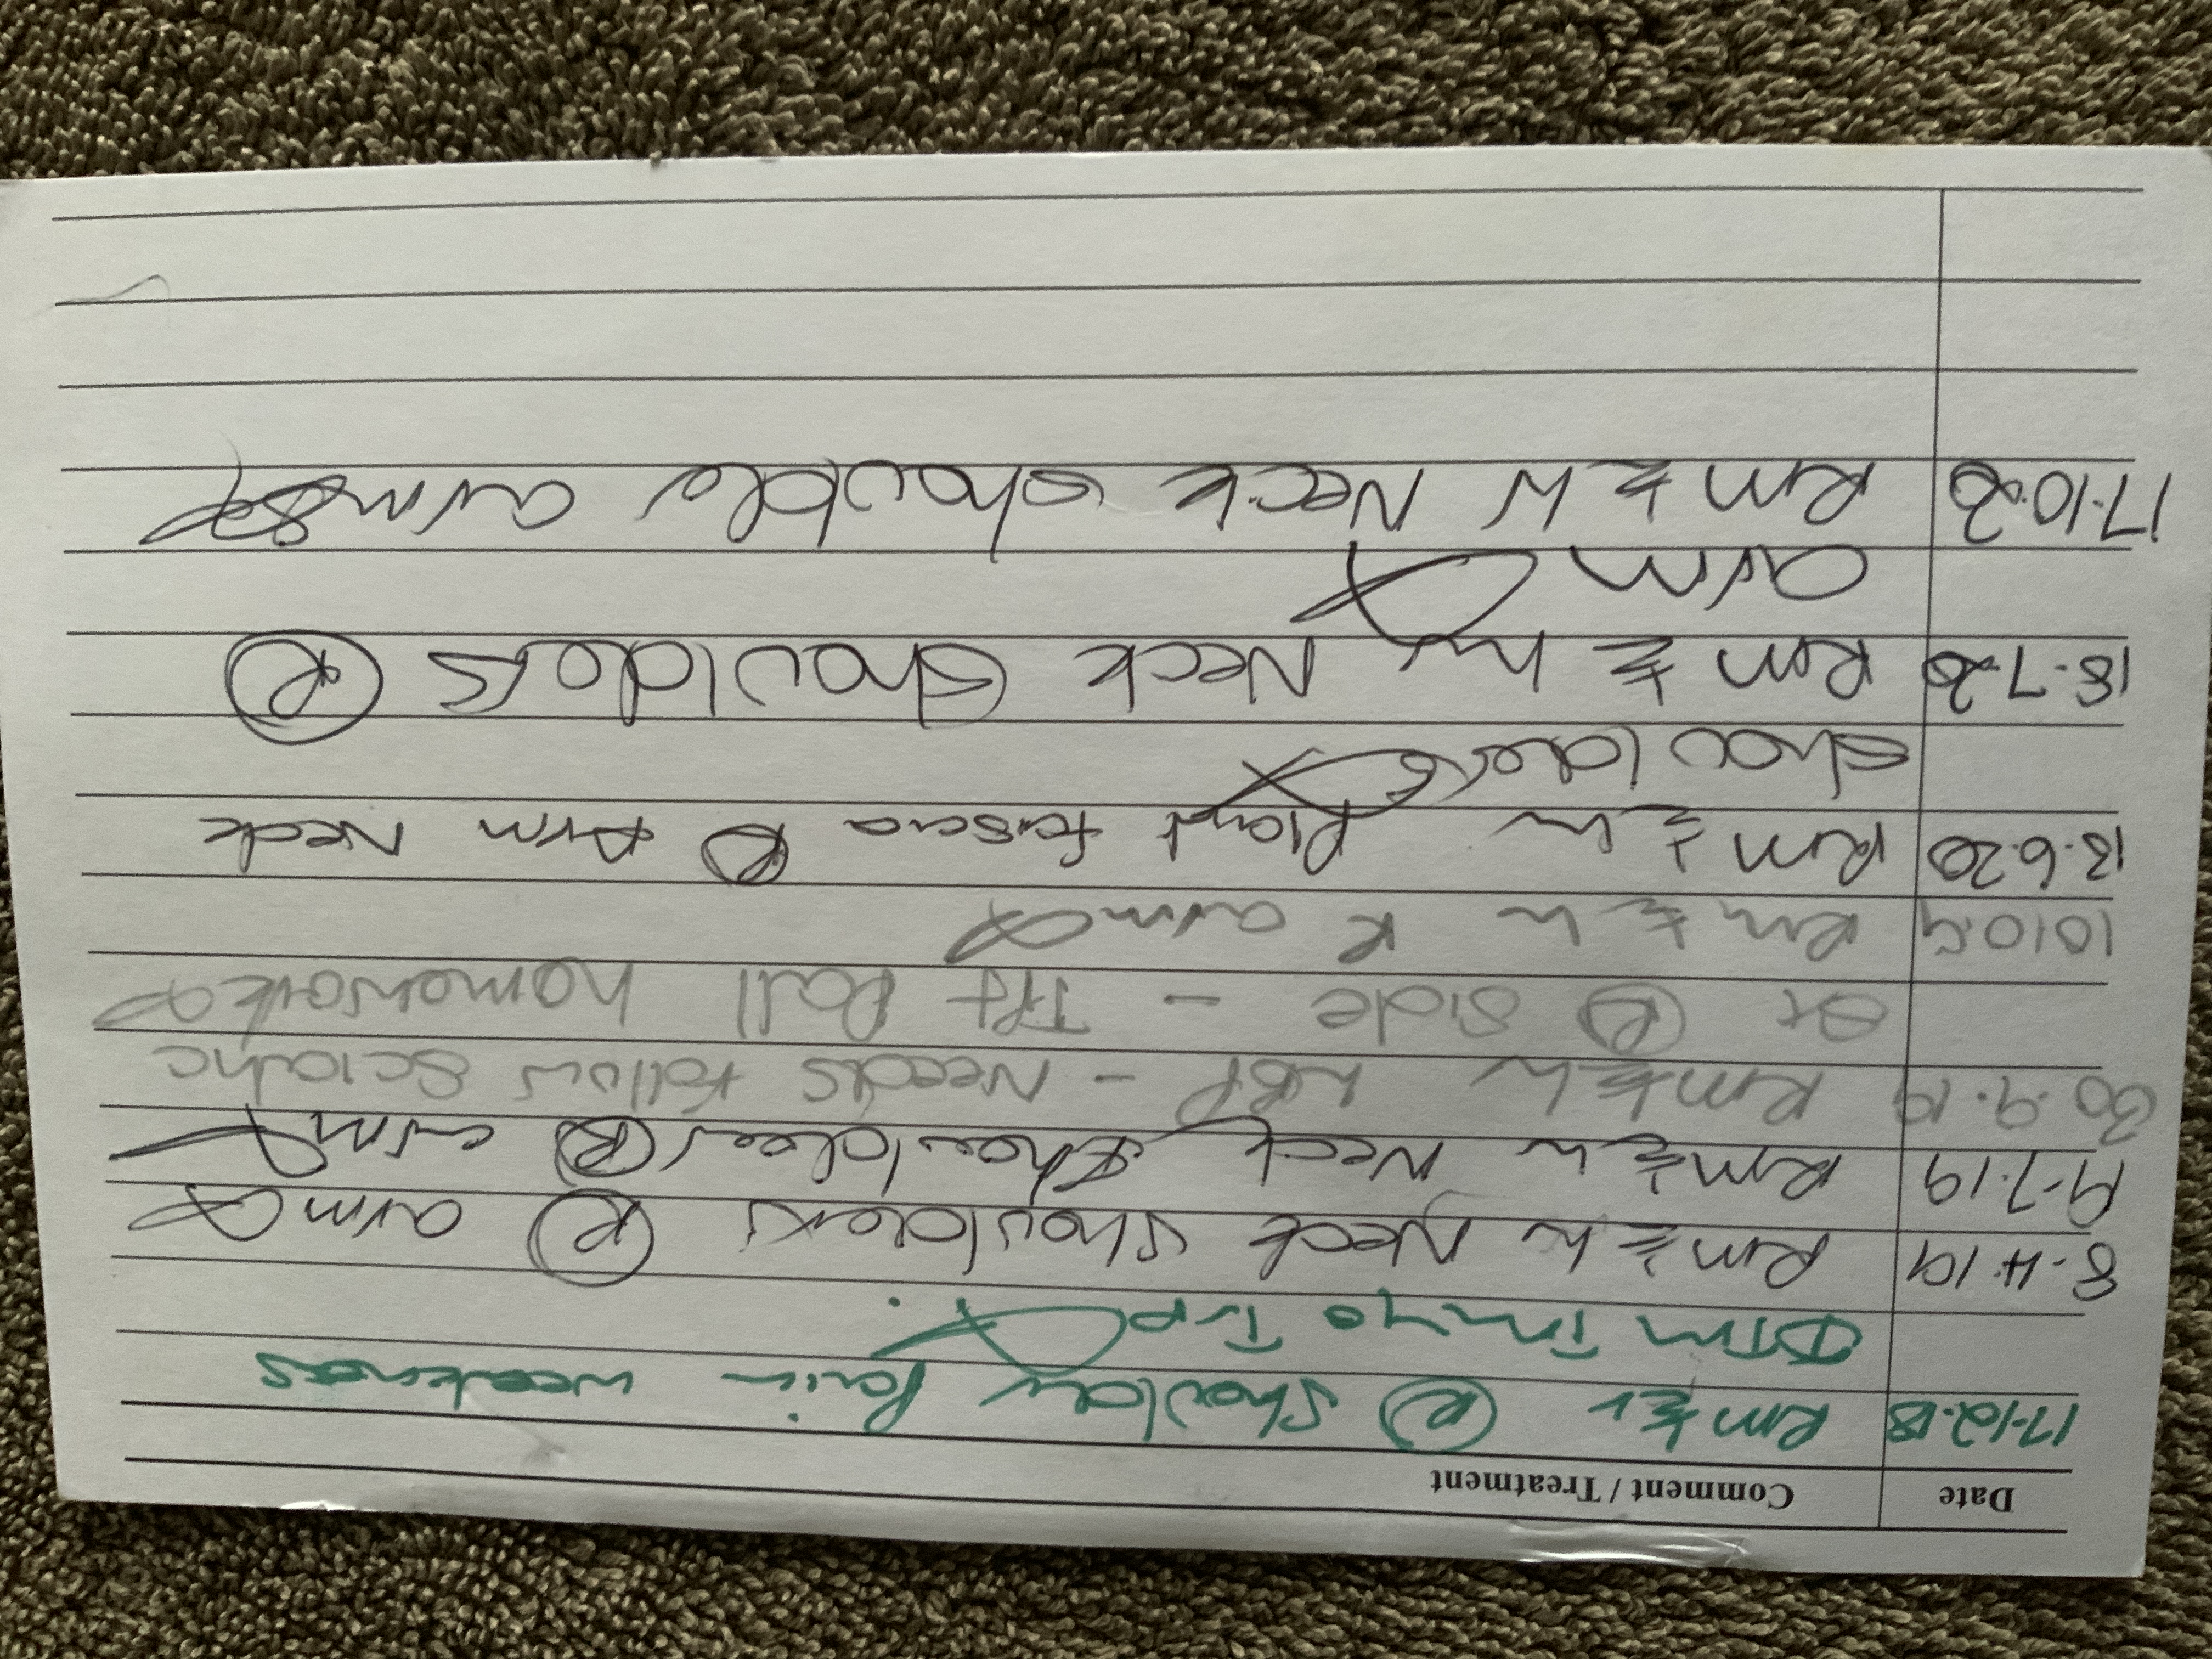 Date Comment / Treatment
17.12.18 Rm (R) Shoulder Pain weakness
DTM
8.4.19 Rm Neck Shoulders (R) arm
9.7.19 Rm Neck Shoulders (R) arm
30.9.19 Rm LBP - Needs follow Sciatic
(R) side - Tft Ball homework
10.10.19 Rm R arm
13.6.20 Rm Plant fascia (R) Arm Neck
Shoulders
18.7.20 Rm Neck Shoulders (R)
arm
17.10.20 Rm Neck Shoulder arms